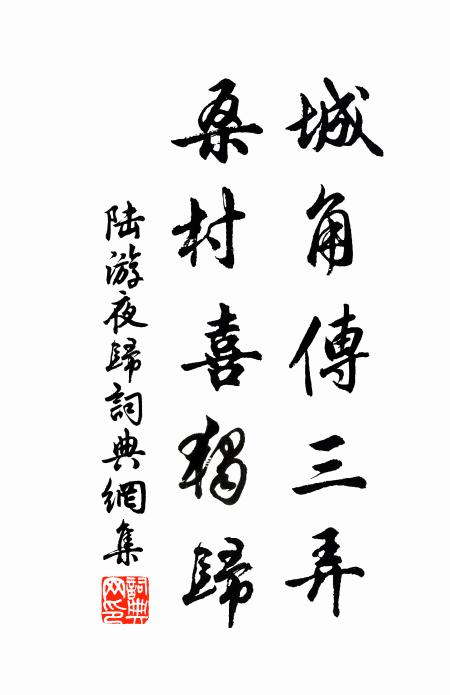 城角傳三弄
桑村喜獨歸
陸游夜歸詞典網集